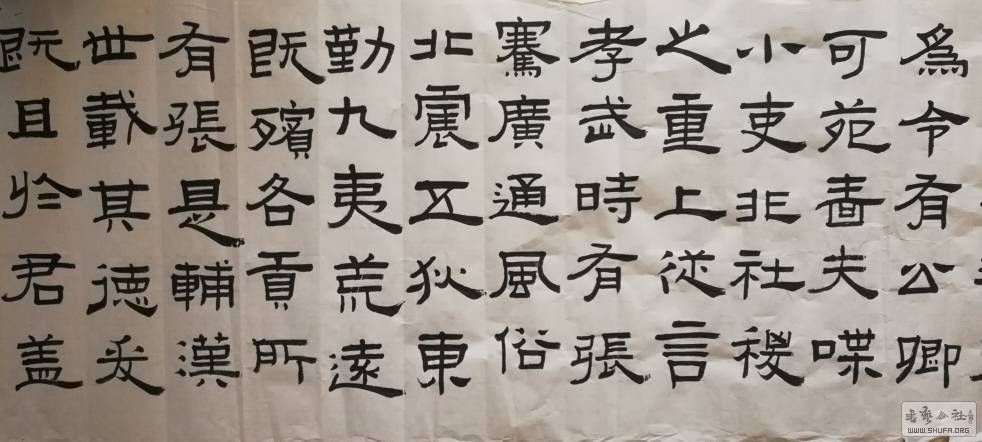 爲令有公卿
可苑嗇夫喋
小吏非社稷
之重上從言
孝武時有張
騫廣通風俗
北震五狄東
勤九夷荒遠
既殯各貢所
有張是輔漢
世載其德爰
既且於君盖
書藝公社
WWW.SHUFA.ORG